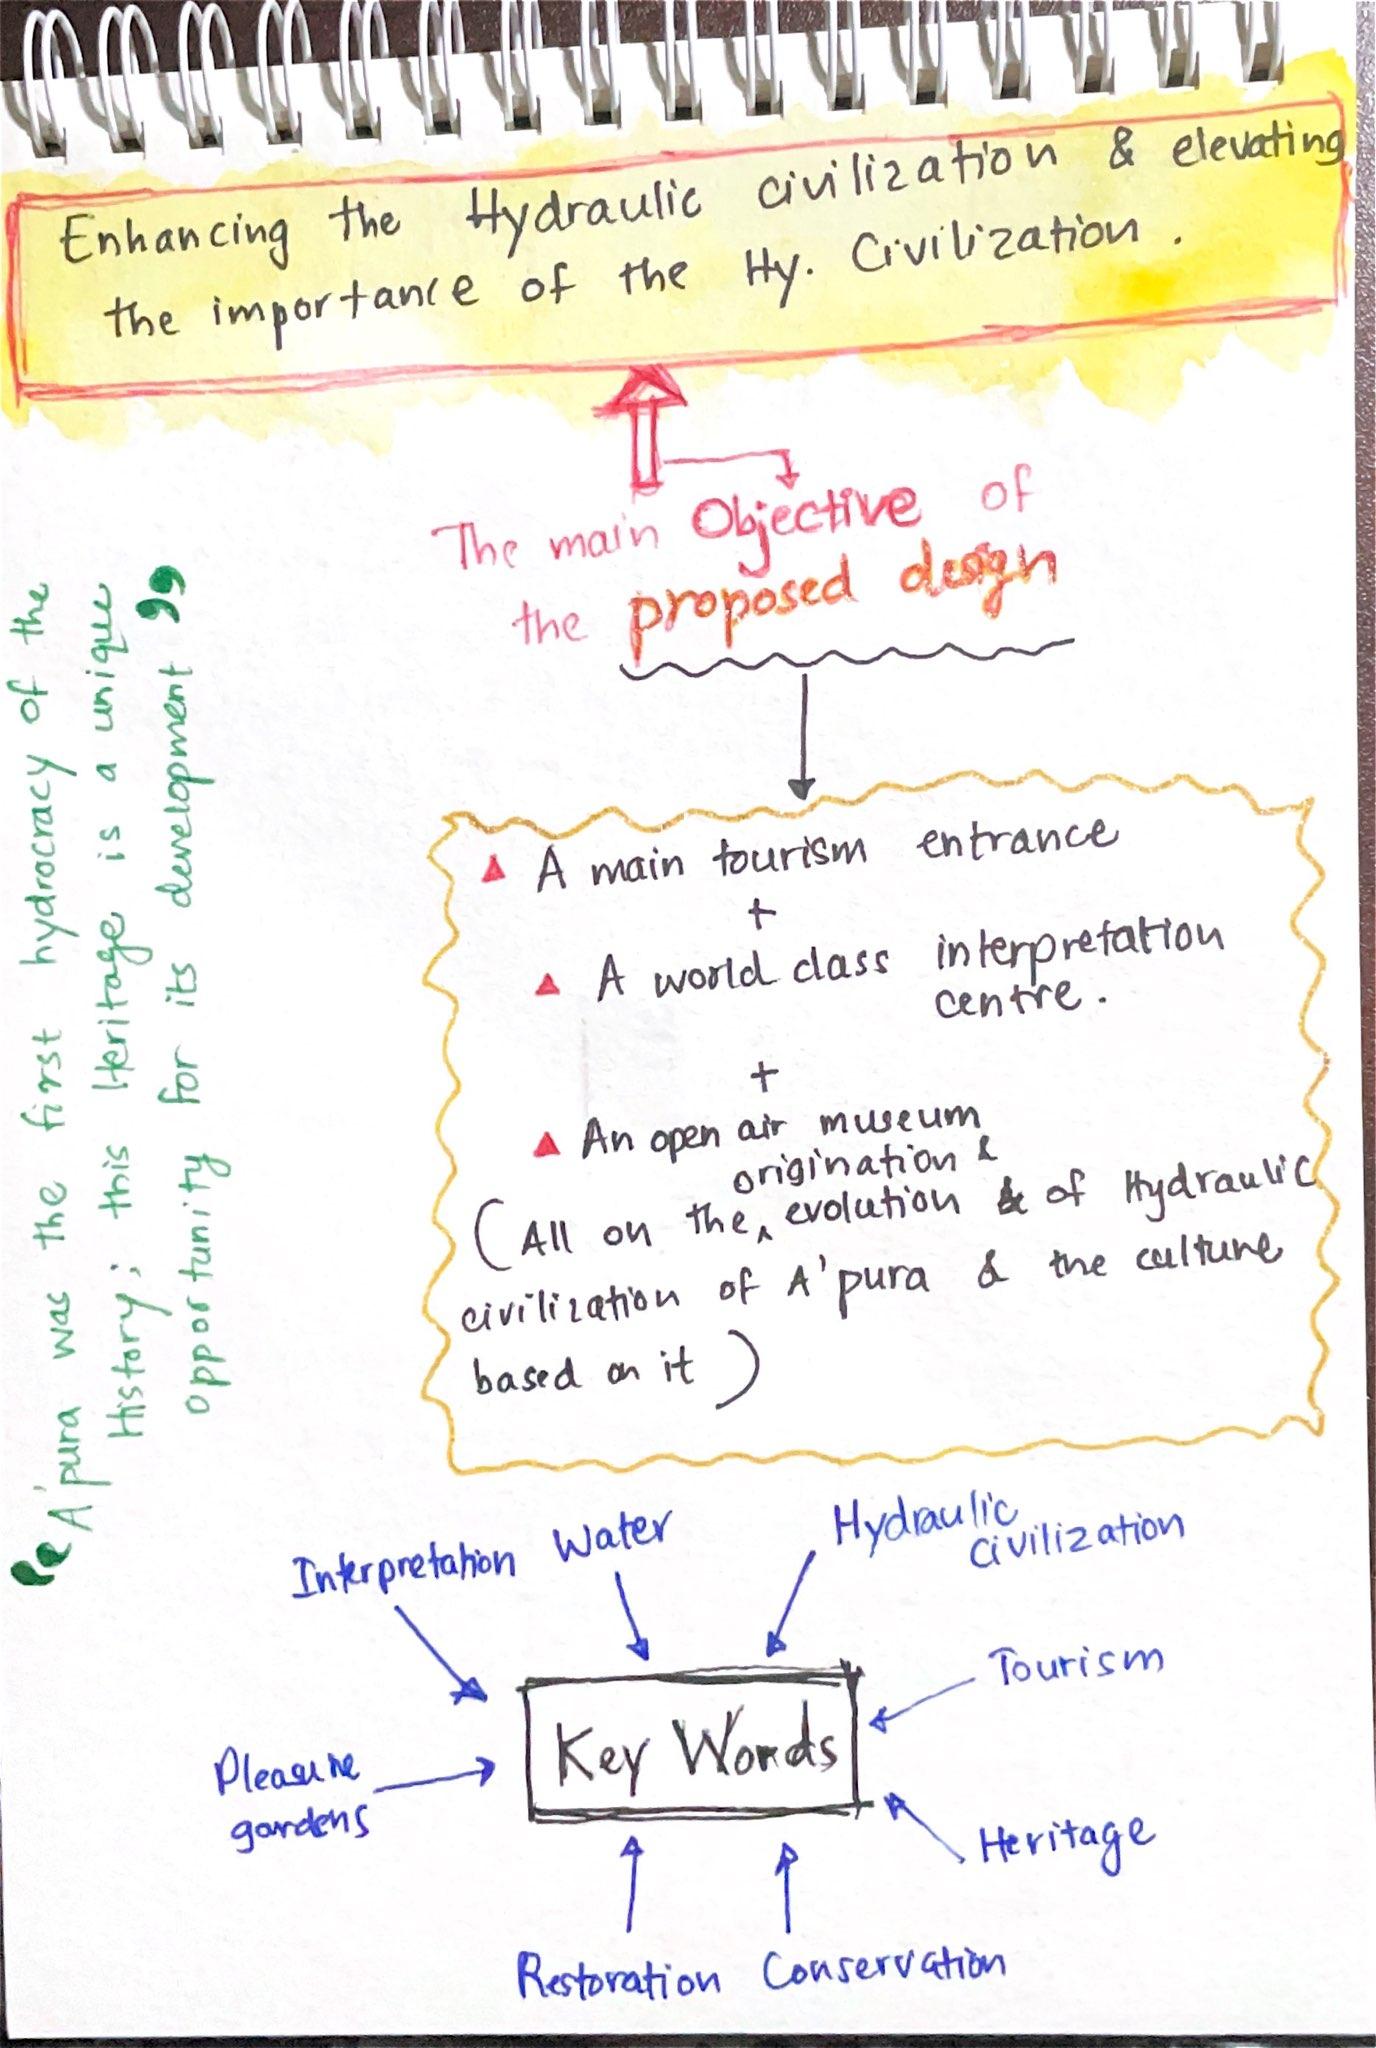 Enhancing the Hydraulic civilization & elevating
the importance of the Hy. Civilization.
The main Objective of
the proposed design
“ A'pura was the first hydrocracy of the
History; this Heritage is a unique
opportunity for its development ”
A main tourism entrance
+
A world class interpretation
centre.
+
An open air museum
origination &
(All on the ^ evolution & of Hydraulic
civilization of A'pura & the culture
based on it)
Interpretation
Water
Hydraulic
civilization
Tourism
Key Words
Pleasure
gardens
Heritage
Restoration
Conservation